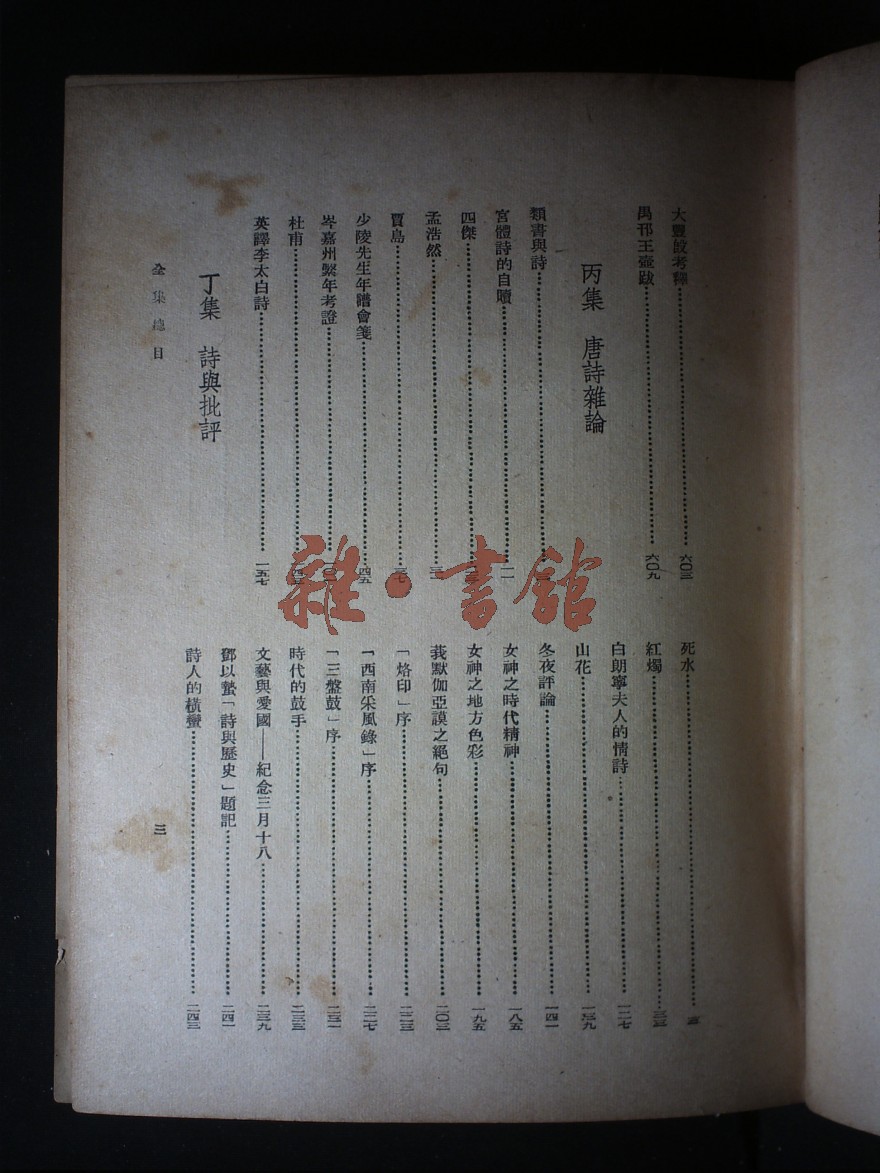 大豐𣪘考釋……六〇三
禺邗王壺跋……六〇九
丙集 唐詩雜論
類書與詩……三
宮體詩的自贖……一一
四傑
孟浩然……三一
賈島……三七
少陵先生年譜會箋……四五
岑嘉州繫年考證
杜甫
英譯李太白詩……一五七
丁集 詩與批評
死水
紅燭……三三
白朗寧夫人的情詩……一二七
山花……一三九
冬夜評論……一四一
女神之時代精神……一八五
女神之地方色彩……一九五
莪默伽亞謨之絕句……二〇三
「烙印」序……二二三
「西南采風錄」序……二二七
「三盤鼓」序……二三一
時代的鼓手……二三三
文藝與愛國——紀念三月十八……二三九
鄧以蟄「詩與歷史」題記……二四一
詩人的橫蠻……二四三
全集總目
三
雜·書館